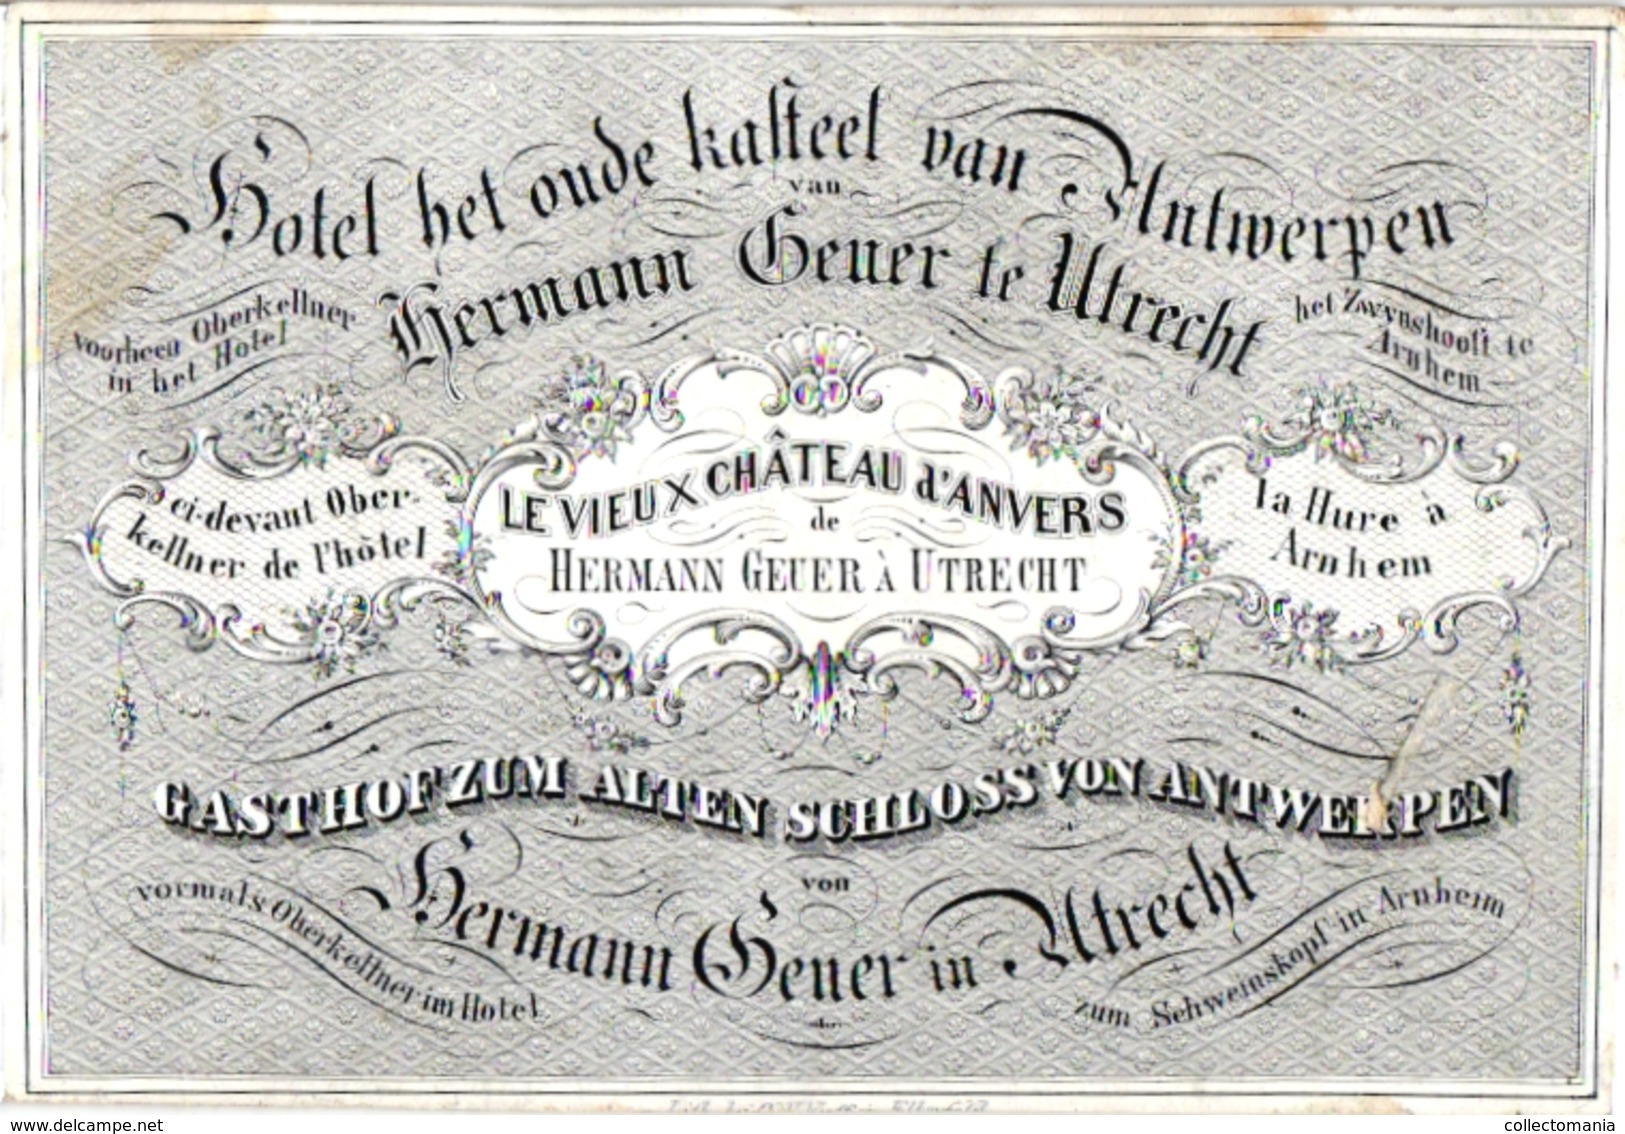 Hotel het oude kasteel van Antwerpen
van
Hermann Geuer te Utrecht
voorheen Oberkellner
in het Hotel
het Zwynshooft te
Arnhem
LE VIEUX CHÂTEAU d'ANVERS
de
HERMANN GEUER À UTRECHT
ci-devant Ober-
kellner de l'hôtel
la Hure à
Arnhem
GASTHOF ZUM ALTEN SCHLOSS VON ANTWERPEN
von
Hermann Geuer in Utrecht
vormals Oberkellner im Hotel
zum Schweinskopf in Arnheim
www.delcampe.net
collectomania